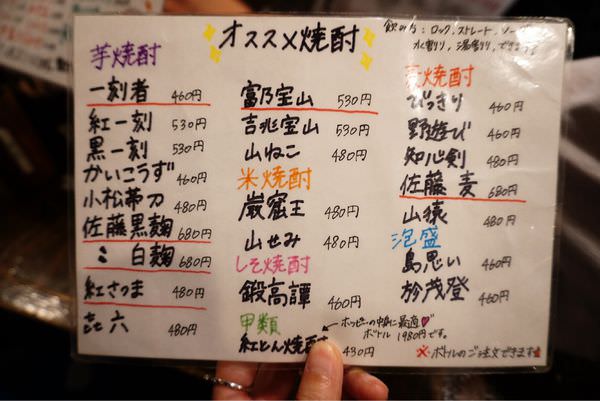 オススメ焼酎
飲み方:ロック、ストレート、ソーダ
水割り、湯割り、できます!
芋焼酎
一刻者 460円
紅一刻 530円
黒一刻 530円
かいこうず 460円
小松帯刀 480円
佐藤黒麹 680円
〃 白麹 680円
紅さつま 480円
㐂六 480円
富乃宝山 530円
吉兆宝山 530円
山ねこ 480円
米焼酎
巌窟王 480円
山せみ 480円
しそ焼酎
鍛高譚 460円
甲類
←ホッピーの中身に最適♡
ボトル 1980円です。
紅とん焼酎 430円
麦焼酎
びっきり 460円
野遊び 460円
知心剣 480円
佐藤 麦 680円
山猿 480円
泡盛
島思い 460円
於茂登 460円
※ボトルのご注文できます